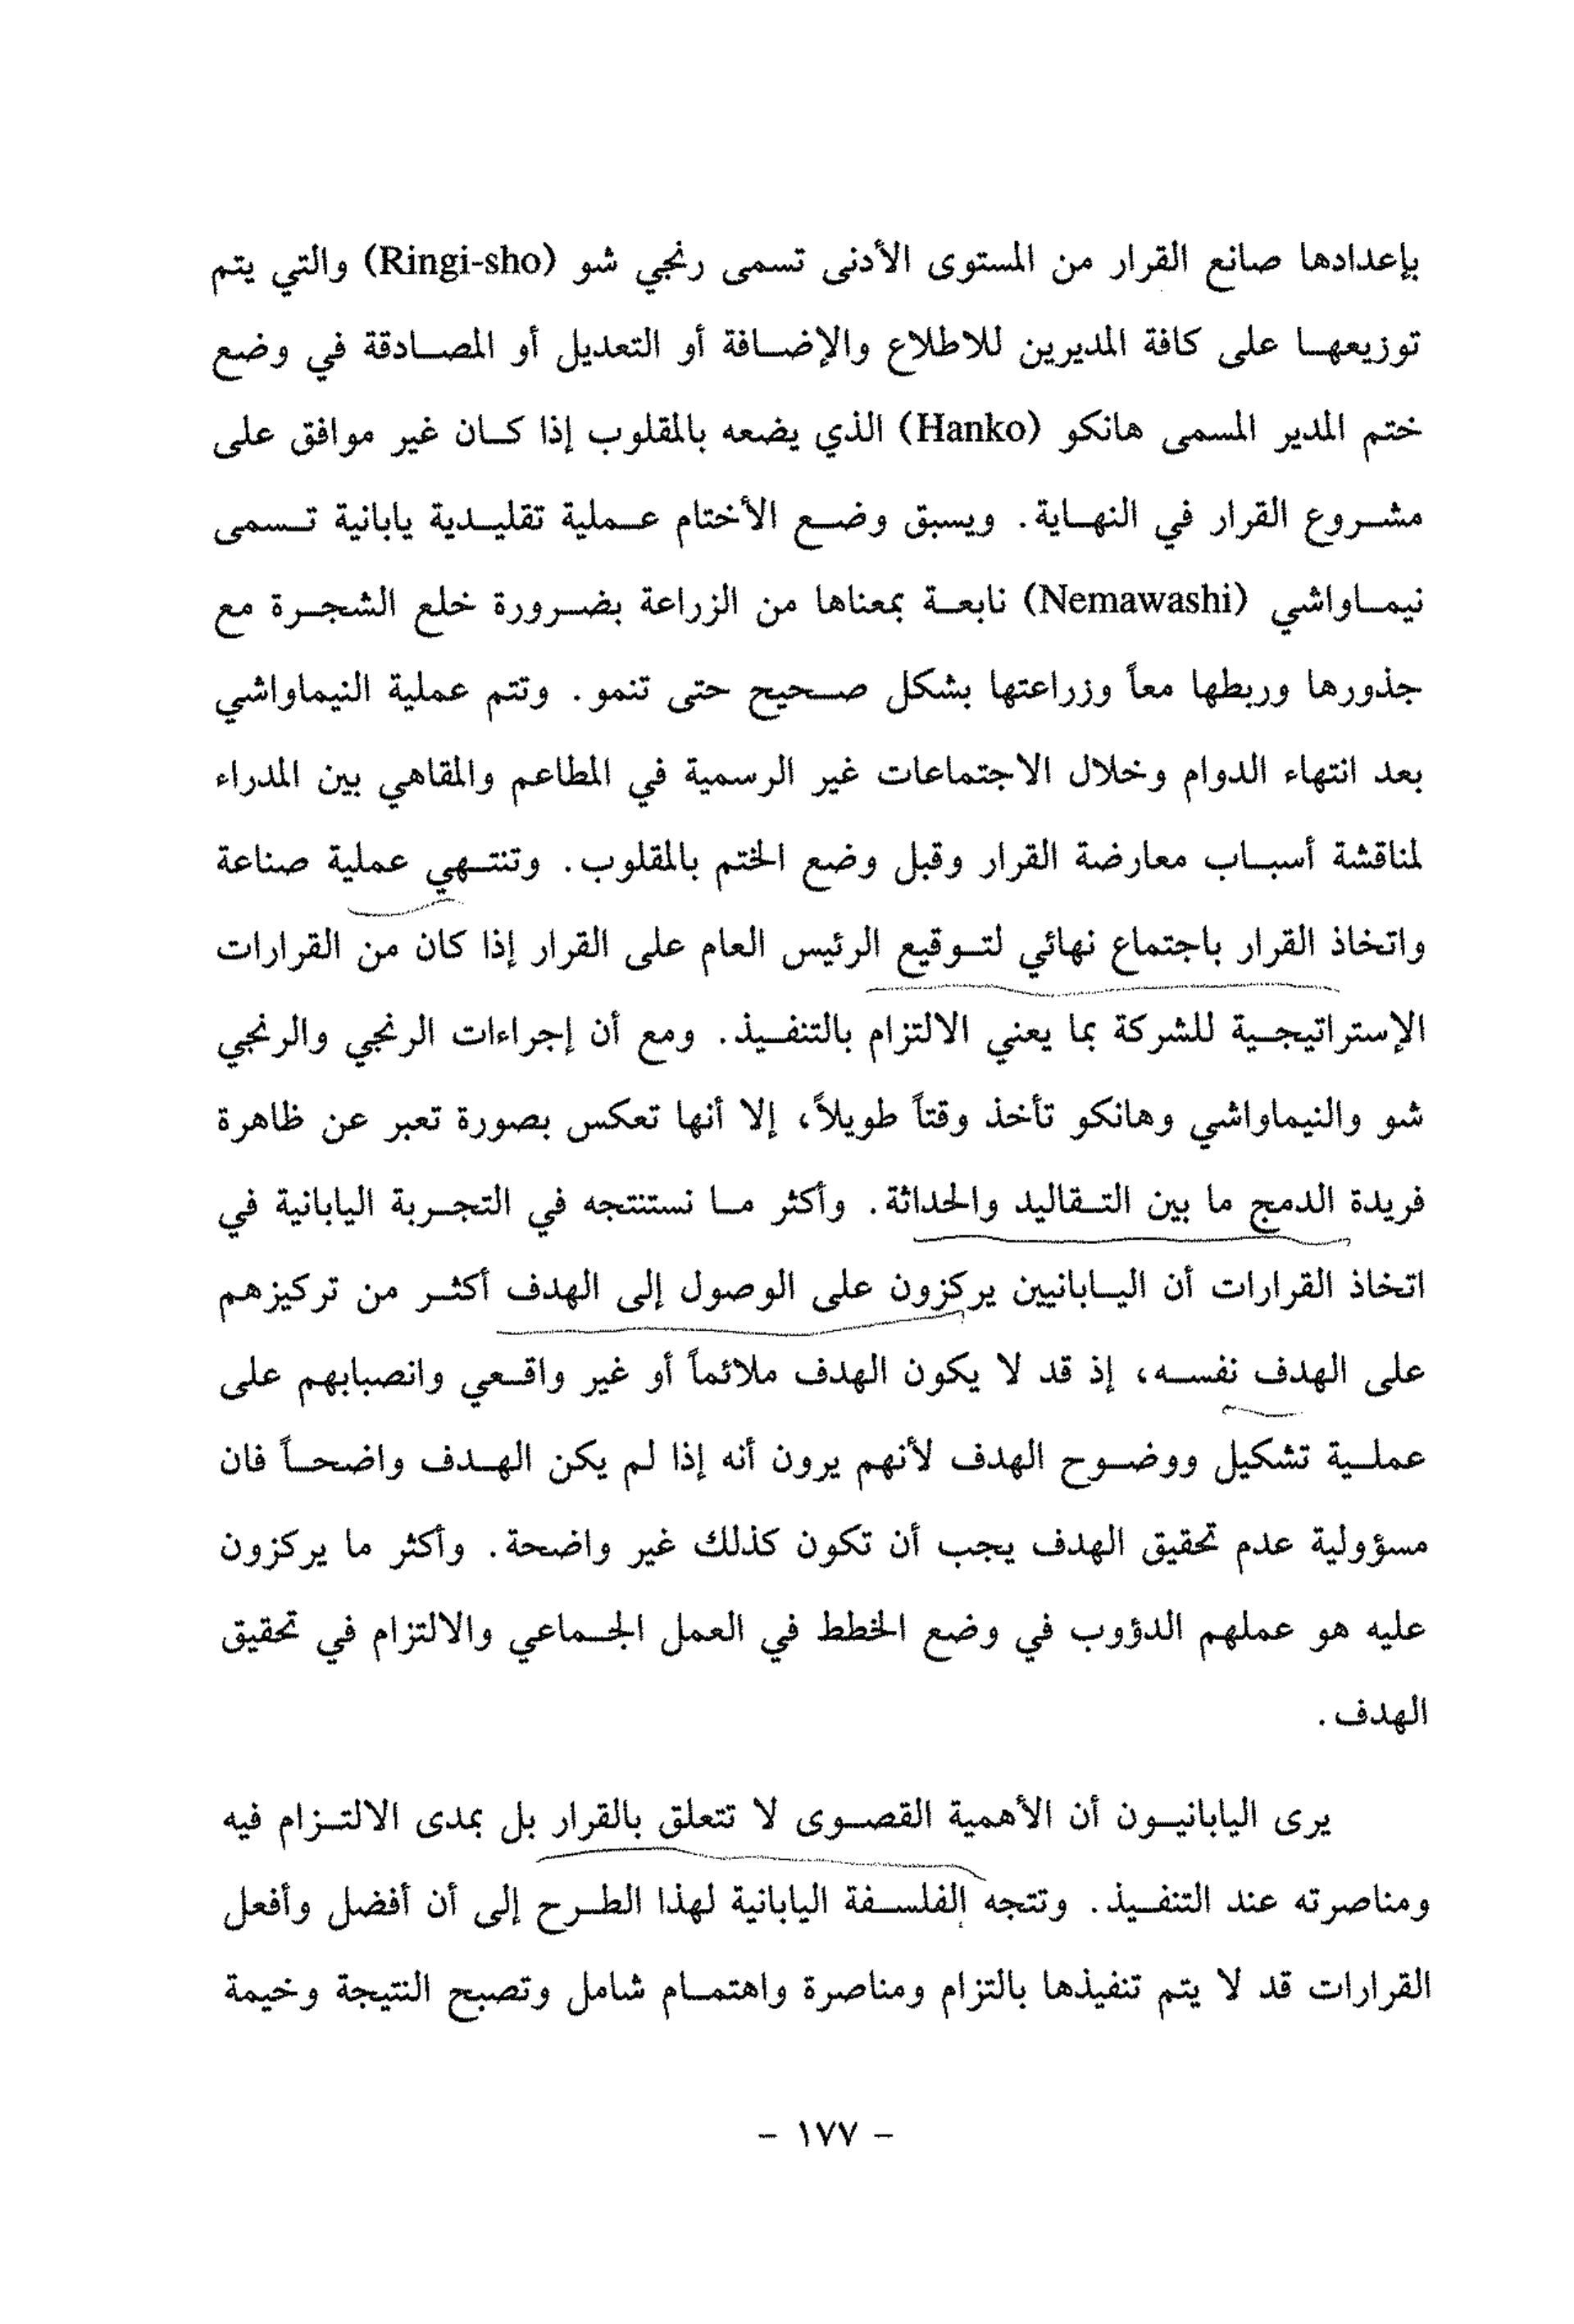 بإعدادها صانع القرار من المستوى الأدنى تسمى رنجي شو (Ringi-sho) والتي يتم
توزيعها على كافة المديرين للاطلاع والإضافة أو التعديل أو المصادقة في وضع
ختم المدير المسمى هانكو (Hanko) الذي يضعه بالمقلوب إذا كان غير موافق على
مشروع القرار في النهاية. ويسبق وضع الأختام عملية تقليدية يابانية تسمى
نيماواشي (Nemawashi) نابعة بمعناها من الزراعة بضرورة خلع الشجرة مع
جذورها وربطها معاً وزراعتها بشكل صحيح حتى تنمو. وتتم عملية النيماواشي
بعد انتهاء الدوام وخلال الاجتماعات غير الرسمية في المطاعم والمقاهي بين المدراء
لمناقشة أسباب معارضة القرار وقبل وضع الختم بالمقلوب. وتنتهي عملية صناعة
واتخاذ القرار باجتماع نهائي لتوقيع الرئيس العام على القرار إذا كان من القرارات
الإستراتيجية للشركة بما يعني الالتزام بالتنفيذ. ومع أن إجراءات الرنجي والرنجي
شو والنيماواشي وهانكو تأخذ وقتاً طويلاً، إلا أنها تعكس بصورة تعبر عن ظاهرة
فريدة الدمج ما بين التقاليد والحداثة. وأكثر ما نستنتجه في التجربة اليابانية في
اتخاذ القرارات أن اليابانيين يركزون على الوصول إلى الهدف أكثر من تركيزهم
على الهدف نفسه، إذ قد لا يكون الهدف ملائماً أو غير واقعي وانصبابهم على
عملية تشكيل ووضوح الهدف لأنهم يرون أنه إذا لم يكن الهدف واضحاً فان
مسؤولية عدم تحقيق الهدف يجب أن تكون كذلك غير واضحة. وأكثر ما يركزون
عليه هو عملهم الدؤوب في وضع الخطط في العمل الجماعي والالتزام في تحقيق
الهدف.
يرى اليابانيون أن الأهمية القصوى لا تتعلق بالقرار بل بمدى الالتزام فيه
ومناصرته عند التنفيذ. وتتجه الفلسفة اليابانية لهذا الطرح إلى أن أفضل وأفعل
القرارات قد لا يتم تنفيذها بالتزام ومناصرة واهتمام شامل وتصبح النتيجة وخيمة
- ١٧٧ -